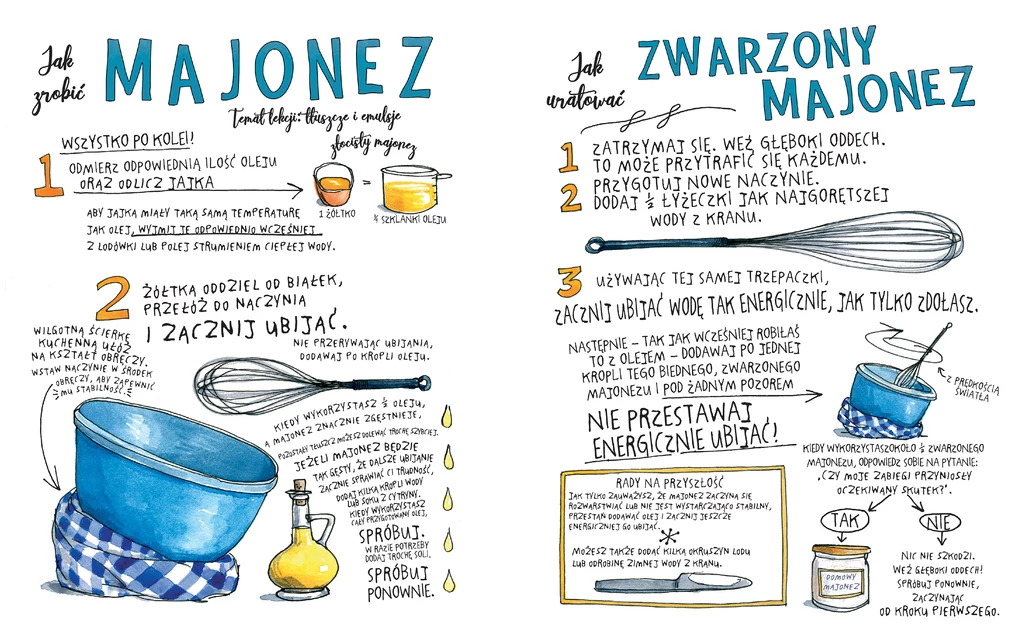 Jak
zrobić
MAJONEZ
Temat lekcji: tłuszcze i emulsje
WSZYSTKO PO KOLEI!
1
ODMIERZ ODPOWIEDNIĄ ILOŚĆ OLEJU
ORAZ ODLICZ JAJKA
złocisty majonez
=
1 ŻÓŁTKO
¾ SZKLANKI OLEJU
ABY JAJKA MIAŁY TAKĄ SAMĄ TEMPERATURĘ
JAK OLEJ, WYJMIJ JE ODPOWIEDNIO WCZEŚNIEJ
Z LODÓWKI LUB POLEJ STRUMIENIEM CIEPŁEJ WODY.
2
ŻÓŁTKA ODDZIEL OD BIAŁEK,
PRZEŁÓŻ DO NACZYNIA
I ZACZNIJ UBIJAĆ.
NIE PRZERYWAJĄC UBIJANIA,
DODAWAJ PO KROPLI OLEJU.
WILGOTNĄ ŚCIERKĘ
KUCHENNĄ UŁÓŻ
NA KSZTAŁT OBRĘCZY.
WSTAW NACZYNIE W ŚRODEK
OBRĘCZY, ABY ZAPEWNIĆ
MU STABILNOŚĆ.
KIEDY WYKORZYSTASZ ⅓ OLEJU,
A MAJONEZ ZNACZNIE ZGĘSTNIEJE,
POZOSTAŁY TŁUSZCZ MOŻESZ DOLEWAĆ TROCHĘ SZYBCIEJ.
JEŻELI MAJONEZ BĘDZIE
TAK GĘSTY, ŻE DALSZE UBIJANIE
ZACZNIE SPRAWIAĆ CI TRUDNOŚĆ,
DODAJ KILKA KROPLI WODY
LUB SOKU Z CYTRYNY.
KIEDY WYKORZYSTASZ
CAŁY PRZYGOTOWANY OLEJ,
SPRÓBUJ.
W RAZIE POTRZEBY
DODAJ TROCHĘ SOLI.
SPRÓBUJ
PONOWNIE.
Jak
uratować
ZWARZONY
MAJONEZ
1
ZATRZYMAJ SIĘ. WEŹ GŁĘBOKI ODDECH.
TO MOŻE PRZYTRAFIĆ SIĘ KAŻDEMU.
2
PRZYGOTUJ NOWE NACZYNIE.
DODAJ ½ ŁYŻECZKI JAK NAJGORĘTSZEJ
WODY Z KRANU.
3
UŻYWAJĄC TEJ SAMEJ TRZEPACZKI,
ZACZNIJ UBIJAĆ WODĘ TAK ENERGICZNIE, JAK TYLKO ZDOŁASZ.
NASTĘPNIE – TAK JAK WCZEŚNIEJ ROBIŁAŚ
TO Z OLEJEM – DODAWAJ PO JEDNEJ
KROPLI TEGO BIEDNEGO, ZWARZONEGO
MAJONEZU I POD ŻADNYM POZOREM
NIE PRZESTAWAJ
ENERGICZNIE UBIJAĆ!
Z PRĘDKOŚCIĄ
ŚWIATŁA
KIEDY WYKORZYSTASZ OKOŁO ⅓ ZWARZONEGO
MAJONEZU, ODPOWIEDZ SOBIE NA PYTANIE:
‚CZY MOJE ZABIEGI PRZYNIOSŁY
OCZEKIWANY SKUTEK?'.
TAK
NIE
DOMOWY
MAJONEZ
NIC NIE SZKODZI.
WEŹ GŁĘBOKI ODDECH!
SPRÓBUJ PONOWNIE,
ZACZYNAJĄC
OD KROKU PIERWSZEGO.
RADY NA PRZYSZŁOŚĆ
JAK TYLKO ZAUWAŻYSZ, ŻE MAJONEZ ZACZYNA SIĘ
ROZWARSTWIAĆ LUB NIE JEST WYSTARCZAJĄCO STABILNY,
PRZESTAŃ DODAWAĆ OLEJ I ZACZNIJ JESZCZE
ENERGICZNIEJ GO UBIJAĆ.
MOŻESZ TAKŻE DODAĆ KILKA OKRUSZYN LODU
LUB ODROBINĘ ZIMNEJ WODY Z KRANU.